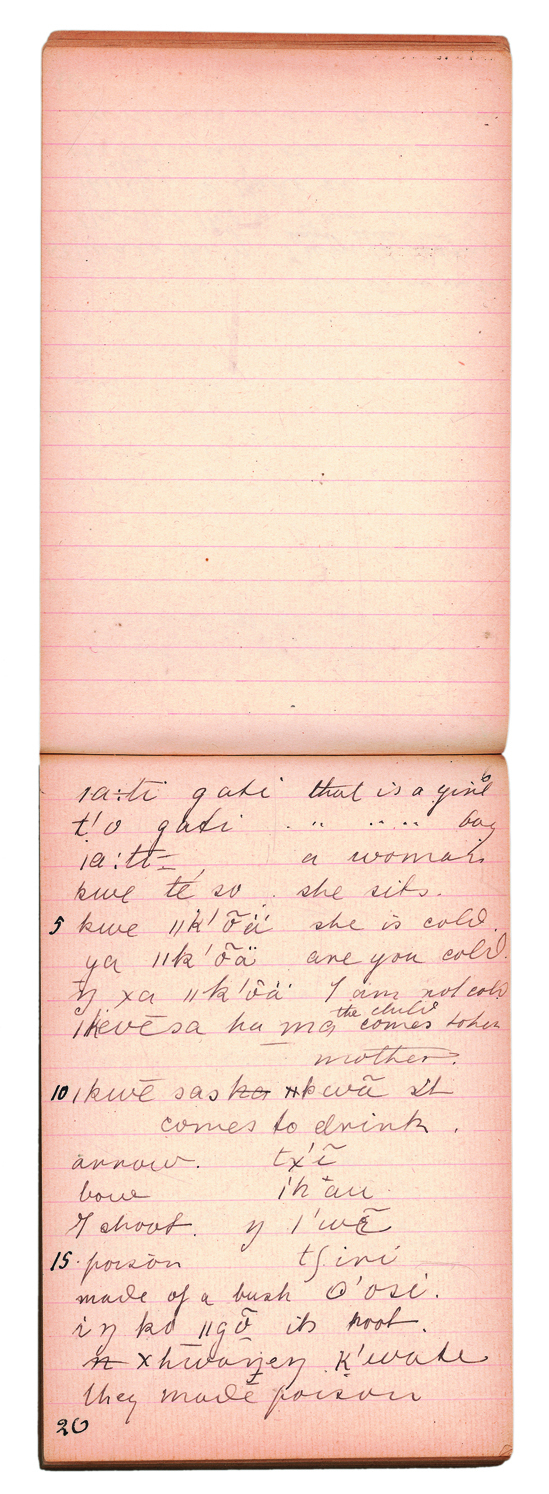 ıa:ti gati that is a girl
t'o gati . " " " boy
ıa:ti a woman
kwe te' so . she sits.
5 kwe ıık'õä she is cold.
ya ıık'õä are you cold.
ŋ xa ıık'õä I am not cold
ıkevēsa ha ma the child comes to her
mother.
10 ıkwē sas ııkwã It
comes to drink .
arrow. tx'ĩ
bow
I shoot. ŋ ı'wẽ
15 poison tʃini
made of a bush ʘ'osi.
iŋ ka ııgõ its root.
they made poison
20